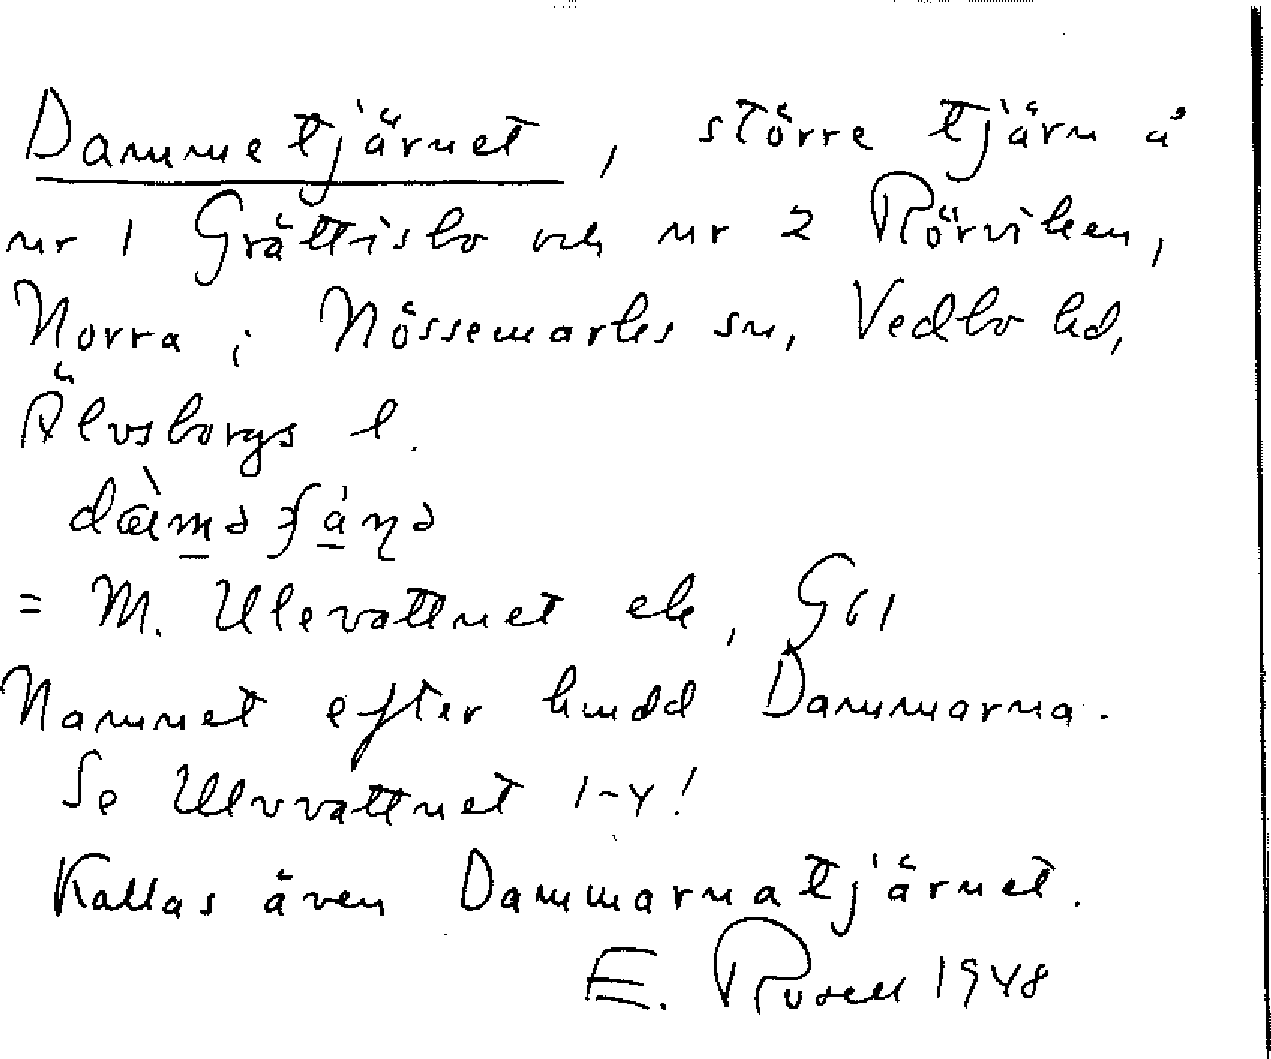 Dammetjärnet, större tjärn å
nr 1 Grättisbo och nr 2 Rörviken,
Norra i Nössemarks sn, Vedbo hd,
Älvsborgs l.
= M. Ulevattnet ek, G61
Namnet efter hmdd Dammarna.
Se Ulvvattnet 1-4!
Kallas även Dammarnatjärnet.
E. Rosell 1948